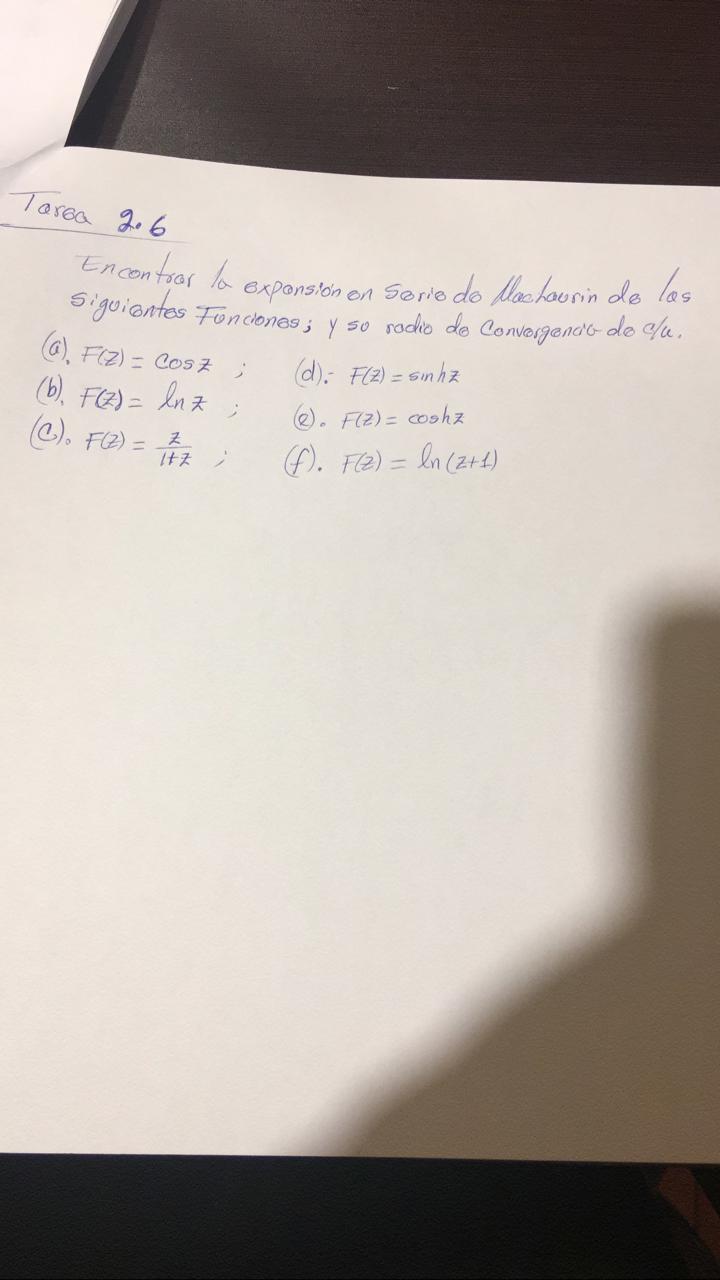 Tarea 2.6
Encontrar la expansión en serie de Machaurin de las
siguientes Funciones; y so radio de Convergencia de c/u.
(a). F(z) = Cos z ; (d).- F(z) = sinh z
(b). F(z) = ln z ; (e). F(z) = cosh z
(C). F(z) = z/(1+z) ; (f). F(z) = ln(z+1)